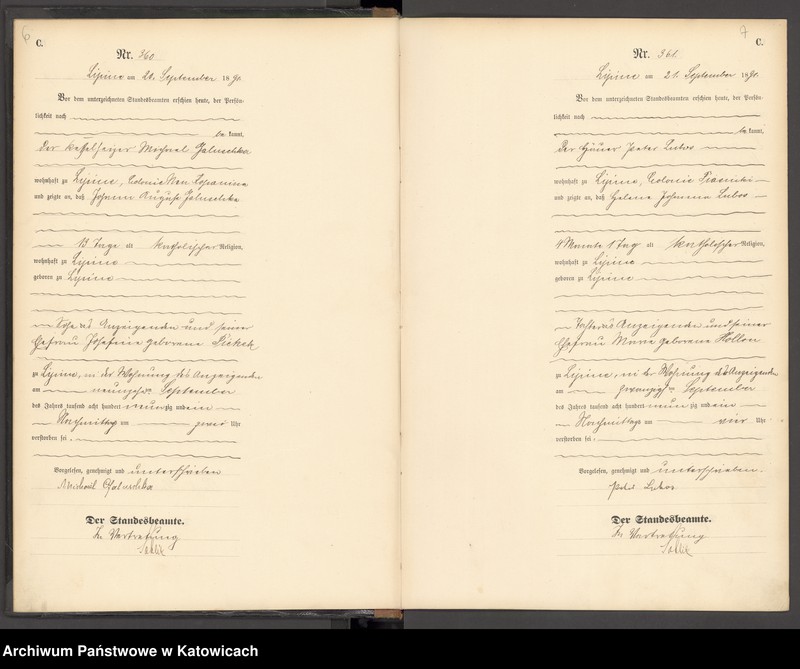 6
C.
Nr. 360
Lipine am 21. September 1891.
Vor dem unterzeichneten Standesbeamten erschien heute, der Persön-
lichkeit nach
be kannt,
der Michael
wohnhaft zu Lipine, Colonie
und zeigte an, daß Johann August
13 Tage alt katholischer Religion,
wohnhaft zu Lipine
geboren zu Lipine
Sohn des Anzeigenden und seiner
Ehefrau Josefine geborene
zu Lipine, in der Wohnung des Anzeigenden
am neunzehnten September
des Jahres tausend acht hundert neunzig und ein
Nachmittags um zwei Uhr
verstorben sei.
Vorgelesen, genehmigt und unterschrieben
Michael
Der Standesbeamte.
In Vertretung
7
C.
Nr. 361.
Lipine am 21. September 1891.
Vor dem unterzeichneten Standesbeamten erschien heute, der Persön-
lichkeit nach
be kannt,
der Häuer Peter Lubos
wohnhaft zu Lipine, Colonie
und zeigte an, daß Helene Johanna Lubos
4 Monate 1 Tag alt katholischer Religion,
wohnhaft zu Lipine
geboren zu Lipine
Tochter des Anzeigenden und seiner
Ehefrau Marie geborene Kollon
zu Lipine, in der Wohnung des Anzeigenden
am zwanzigsten September
des Jahres tausend acht hundert neunzig und ein
Nachmittags um vier Uhr
verstorben sei.
Vorgelesen, genehmigt und unterschrieben.
Peter Lubos
Der Standesbeamte.
In Vertretung
Archiwum Państwowe w Katowicach